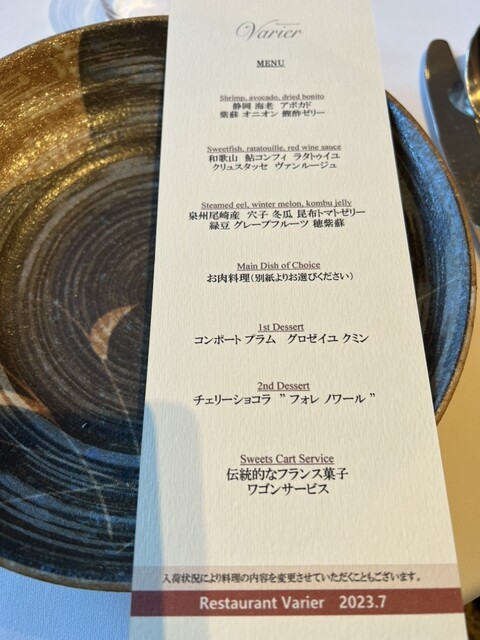 Varier
MENU
Shrimp, avocado, dried bonito
静岡 海老 アボカド
紫蘇 オニオン 鰹酢ゼリー
Sweetfish, ratatouille, red wine sauce
和歌山 鮎コンフィ ラタトゥイユ
クリュスタッセ ヴァンルージュ
Steamed eel, winter melon, kombu jelly
泉州尾崎産 穴子 冬瓜 昆布トマトゼリー
緑豆 グレープフルーツ 穂紫蘇
Main Dish of Choice
お肉料理(別紙よりお選びください)
1st Dessert
コンポート プラム グロゼイユ クミン
2nd Dessert
チェリーショコラ ” フォレ ノワール ”
Sweets Cart Service
伝統的なフランス菓子
ワゴンサービス
入荷状況により料理の内容を変更させていただくこともございます。
Restaurant Varier 2023.7